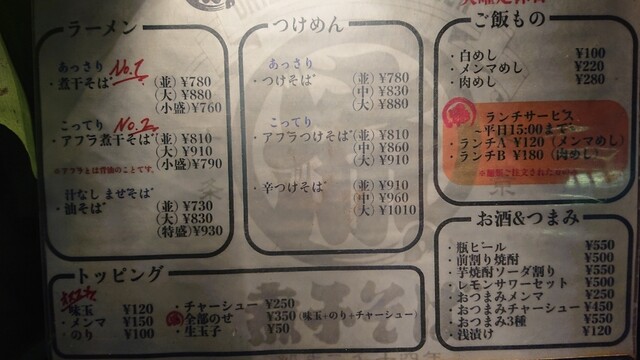 ラーメン
あっさり No.1
・煮干そば (並) ¥780
(大) ¥880
(小盛) ¥760
こってり No.2
・アブラ煮干そば (並) ¥810
(大) ¥910
(小盛) ¥790
※アブラとは背油のことです。
汁なし まぜそば
・油そば (並) ¥730
(大) ¥830
(特盛) ¥930
つけめん
あっさり
・つけそば (並) ¥780
(中) ¥830
(大) ¥880
こってり
・アブラつけそば (並) ¥810
(中) ¥860
(大) ¥910
・辛つけそば (並) ¥910
(中) ¥960
(大) ¥1010
ご飯もの
・白めし ¥100
・メンマめし ¥220
・肉めし ¥280
ランチサービス
～平日15:00まで～
・ランチA ¥120 (メンマめし)
・ランチB ¥180 (肉めし)
お酒&つまみ
・瓶ビール ¥550
・前割り焼酎 ¥500
・芋焼酎ソーダ割り ¥550
・レモンサワーセット ¥500
・おつまみメンマ ¥250
・おつまみチャーシュー ¥450
・おつまみ3種 ¥550
・浅漬け ¥120
トッピング
・味玉 ¥120
・メンマ ¥150
・のり ¥100
・チャーシュー ¥250
・全部のせ ¥350 (味玉+のり+チャーシュー)
・生玉子 ¥50
煮干そば